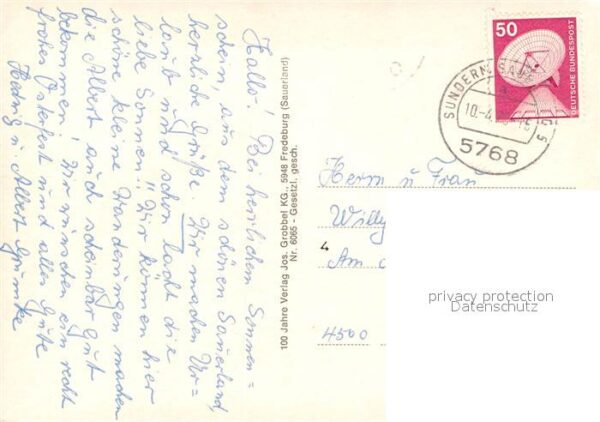 Hallo! Bei herrlichem Sonnen=
schein aus dem schönen Sauerland,
herzliche Grüße. Wir machen Ur=
laub und schon lacht die
liebe Sonne!! Wir können hier
schöne kleine Wanderungen machen
die Albert auch scheinbar gut
bekommen! Wir wünschen ein recht
frohes Osterfest und alles Gute
u. Albert
100 Jahre Verlag Jos. Grobbel KG., 5948 Fredeburg (Sauerland)
Nr. 6065 - Gesetzl. gesch.
50
DEUTSCHE BUNDESPOST
SUNDERN
10.-4.
5768
Herrn u Frau
Willy
4
Am
4500
privacy protection
Datenschutz